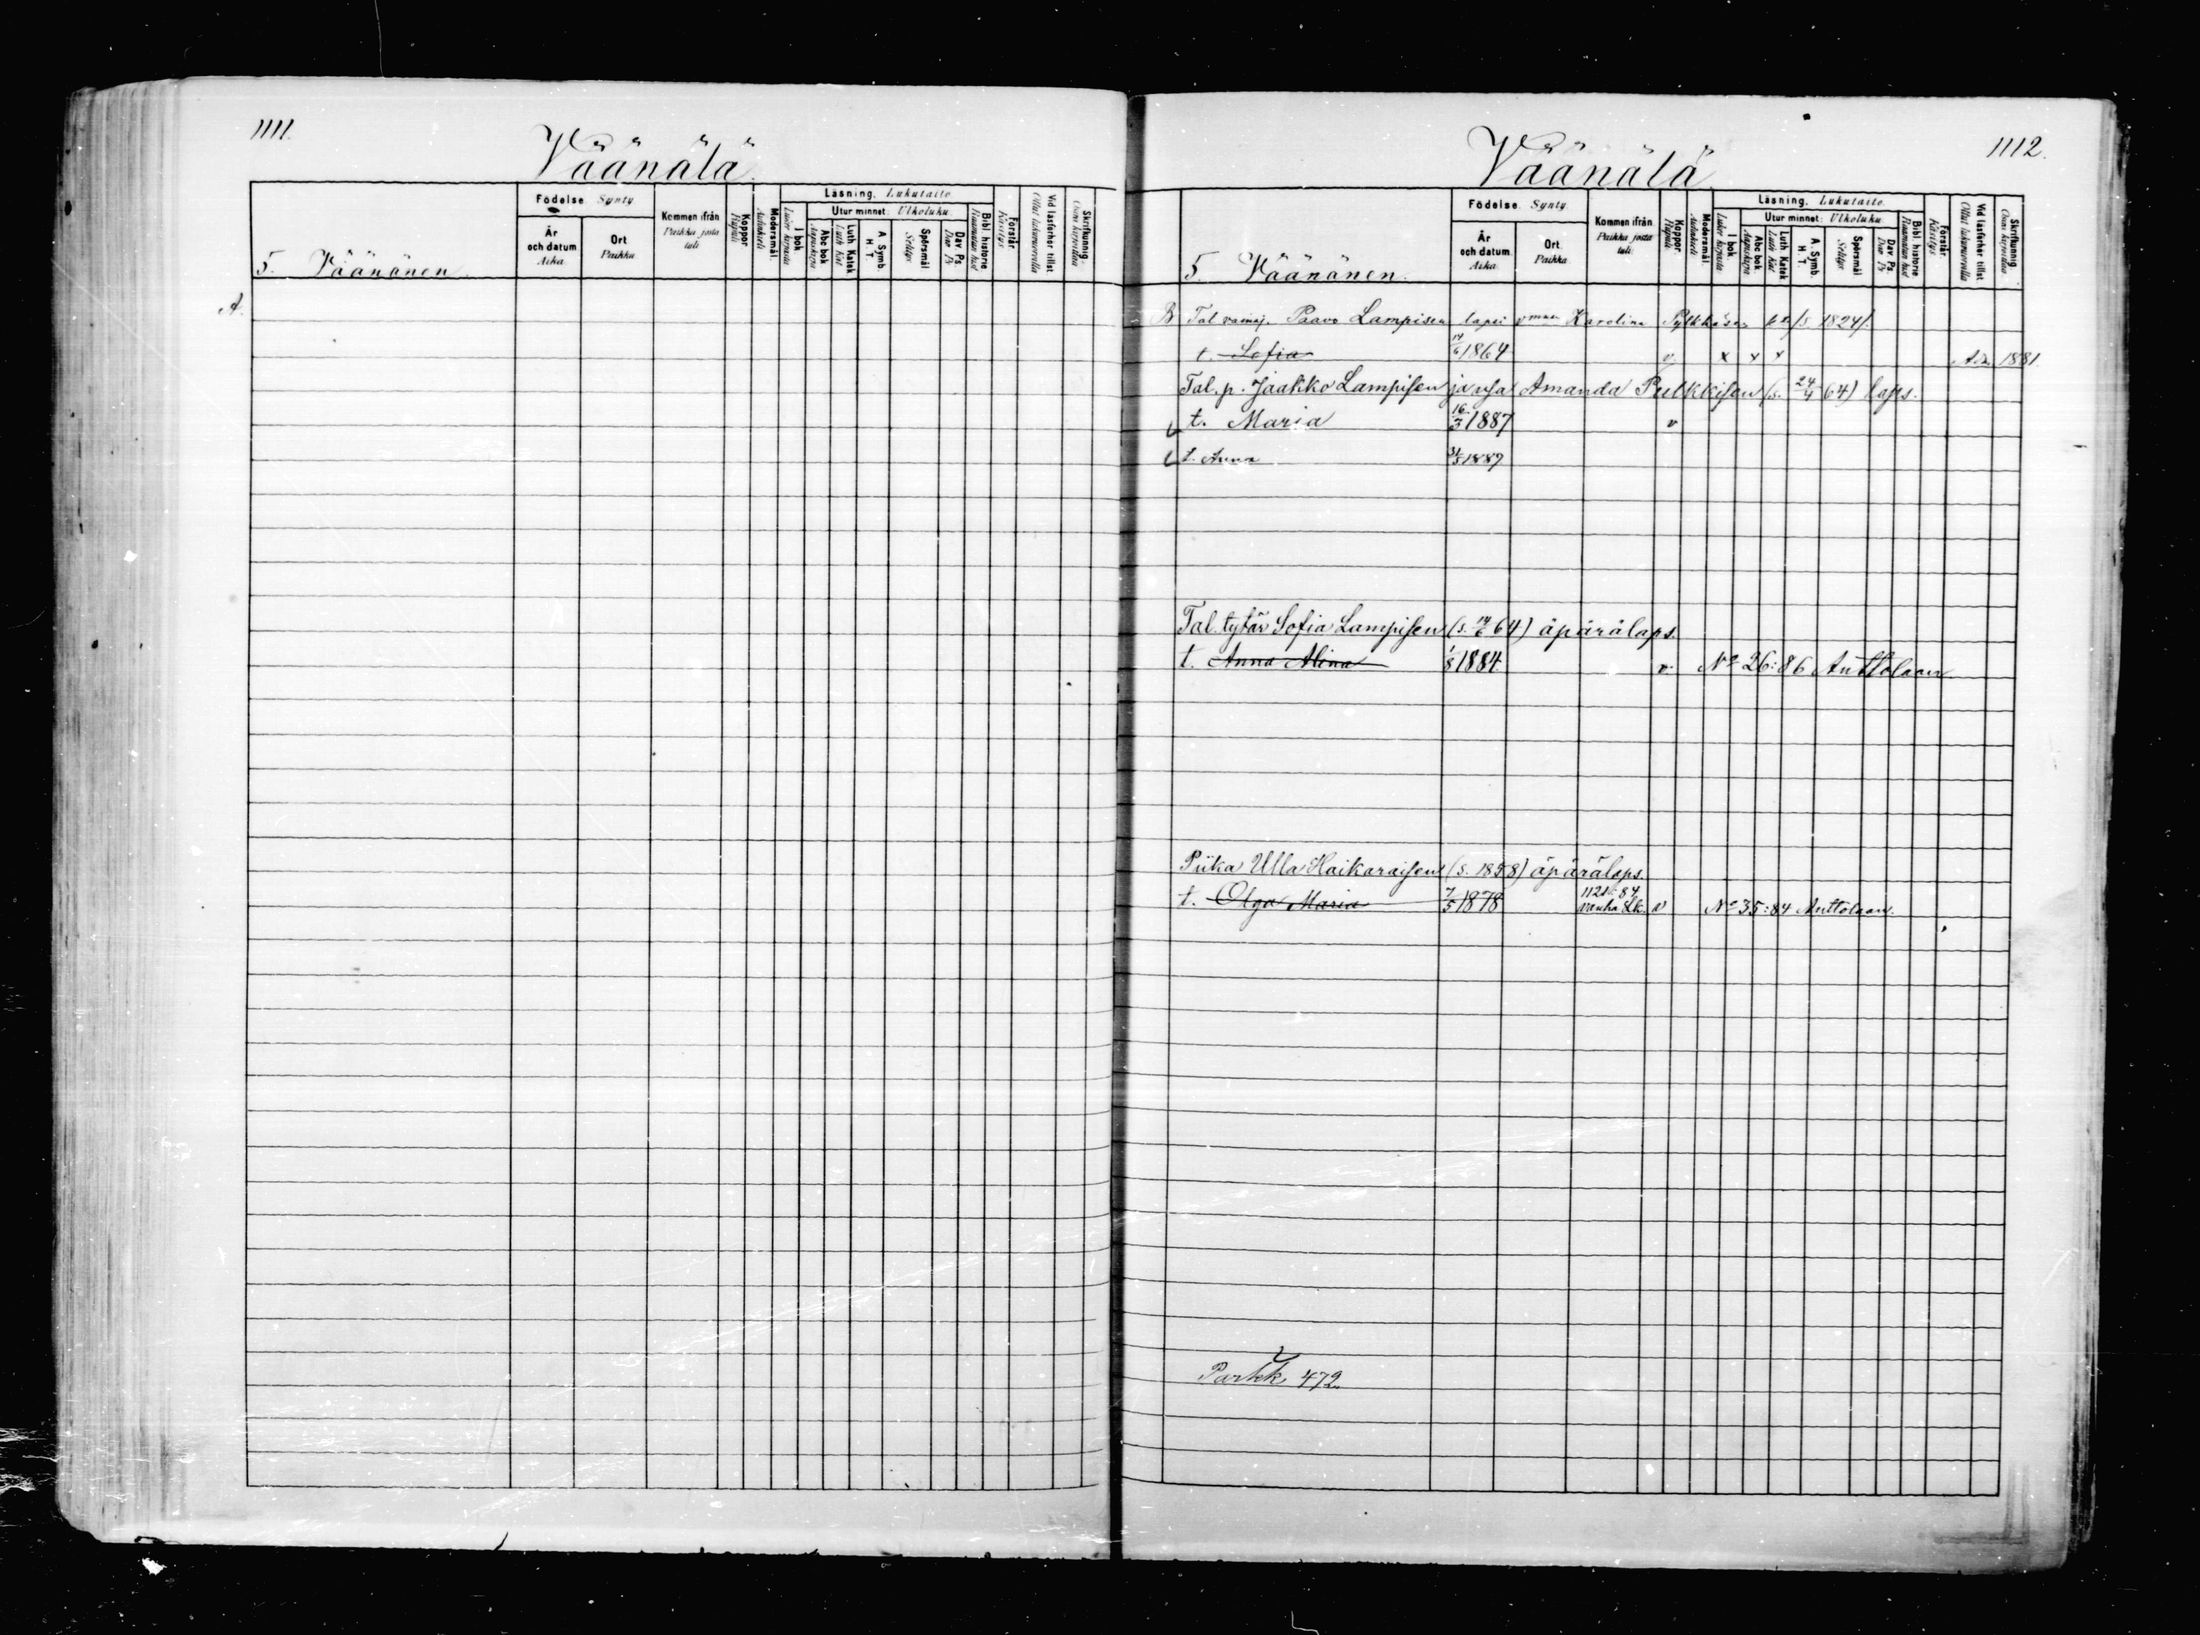 1111.
Väänälä.
5. Väänänen.
Födelse. Synty
År och datum Aika
Ort Paikka
Kommen ifrån Paikka josta tuli
Koppor Rupuli
Modersmål.
Läsning. Lukutaito.
I bok
Utur minnet: Ulkoluku.
Abc bok
Luth Katek
A. Symb. H. T.
Spörsmål Selitys
Dav. Ps.
Bibl. historie
Förstår. Käsitys
Vid läsförhör tillst.
Skrifkunnig.
A.
1112.
Väänälä
5. Väänänen.
Födelse. Synty.
År och datum. Aika
Ort. Paikka.
Kommen ifrån Paikka josta tuli.
Koppor. Rupuli
Modersmål.
Läsning. Lukutaito.
I bok.
Utur minnet: Ulkoluku.
Abc bok.
Luth Katek.
A. Symb. H. T.
Spörsmål Selitys
Dav. Ps.
Bibl. historie
Förstår. Käsitys
Vid läsförhör tillst.
Skrifkunnig.
B Tal. Paavo Lampisen lapsi Karolina /s 1824/.
t. Sofia 14/6 1864 v x x x 1881
Tal. p. Jaakko Lampisen ja Amanda Pulkkisen (s. 24/4 64) laps.
t. Maria 16/3 1887 v
t. Anna 31/5 1889
Tal. tytär Sofia Lampisen (s. 14/6 64) äpärälaps.
t. Anna Alina 1/8 1884 v. No 26:86 Anttolaan
Piika Ulla Haikaraisen (s. 1858) äpärälaps.
t. Olga Maria 7/5 1878 vanha v No 35:84 Anttolaan.
472.